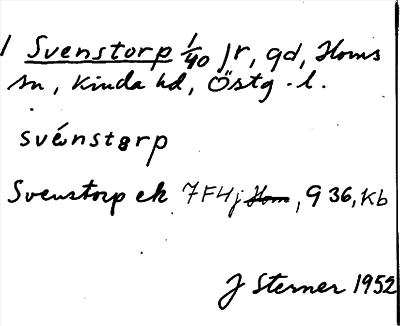 1 Svenstorp 1/40 fr, gd, Horns
sn, Kinda hd, Östg. l.
svénstərp
Svenstorp ek 7F4j Horn, G 36, Kb
J Sterner 1952